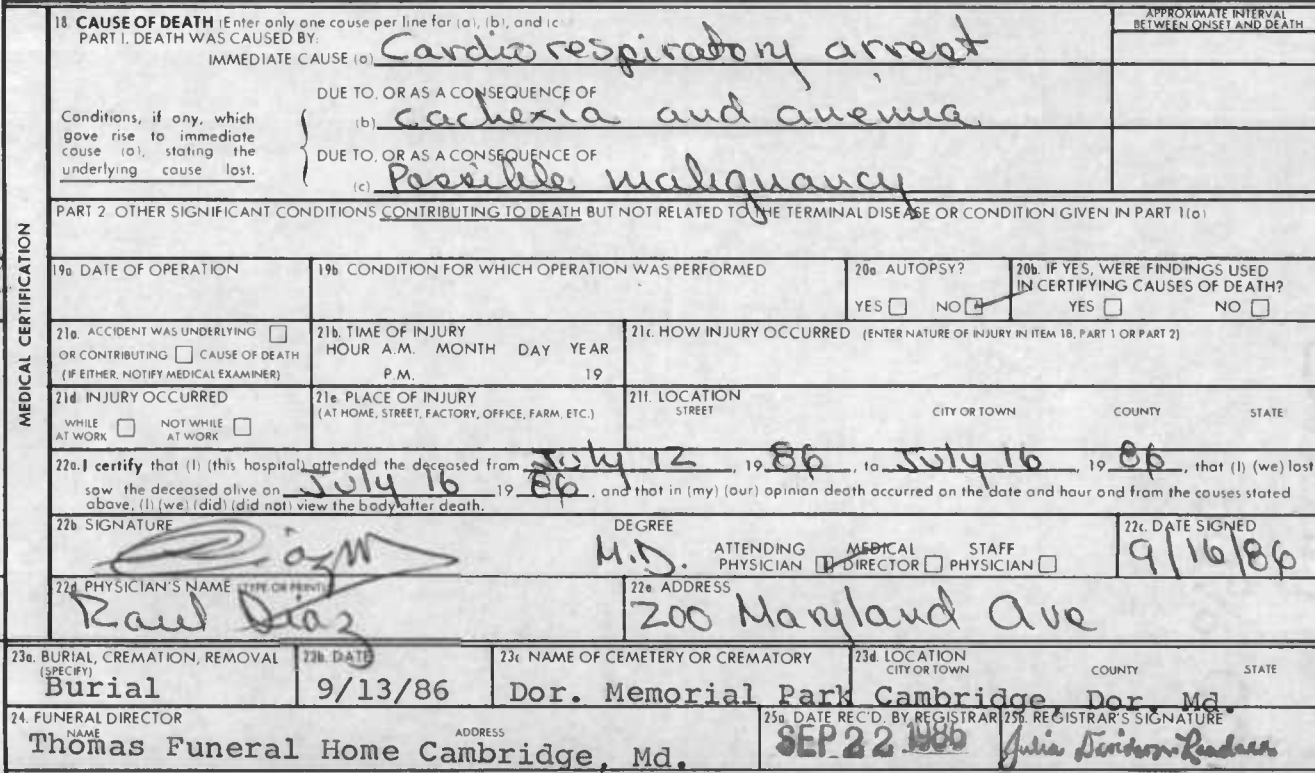 18 CAUSE OF DEATH (Enter only one cause per line for (a), (b), and (c
APPROXIMATE INTERVAL
BETWEEN ONSET AND DEATH
PART I. DEATH WAS CAUSED BY:
IMMEDIATE CAUSE (a) Cardiorespiratory arrest
DUE TO, OR AS A CONSEQUENCE OF
Conditions, if any, which
gave rise to immediate
cause (a), stating the
underlying cause last.
(b) Cachexia and anemia
DUE TO, OR AS A CONSEQUENCE OF
(c) Possible malignancy
PART 2 OTHER SIGNIFICANT CONDITIONS CONTRIBUTING TO DEATH BUT NOT RELATED TO THE TERMINAL DISEASE OR CONDITION GIVEN IN PART 1(a)
MEDICAL CERTIFICATION
19a DATE OF OPERATION
19b CONDITION FOR WHICH OPERATION WAS PERFORMED
20a AUTOPSY?
YES NO
20b. IF YES, WERE FINDINGS USED
IN CERTIFYING CAUSES OF DEATH?
YES NO
21a. ACCIDENT WAS UNDERLYING
OR CONTRIBUTING CAUSE OF DEATH
(IF EITHER, NOTIFY MEDICAL EXAMINER)
21b. TIME OF INJURY
HOUR A.M. MONTH DAY YEAR
P.M. 19
21c. HOW INJURY OCCURRED (ENTER NATURE OF INJURY IN ITEM 18, PART 1 OR PART 2)
21d INJURY OCCURRED
WHILE AT WORK NOT WHILE AT WORK
21e PLACE OF INJURY
(AT HOME, STREET, FACTORY, OFFICE, FARM, ETC.)
21f. LOCATION
STREET CITY OR TOWN COUNTY STATE
22a. I certify that (I) (this hospital) attended the deceased from July 12, 19 86, to July 16, 19 86, that (I) (we) last
saw the deceased alive on July 16 19 86, and that in (my) (our) opinion death occurred on the date and hour and from the causes stated
above, (I) (we) (did) (did not) view the body after death.
22b SIGNATURE
DEGREE
M.D.
ATTENDING PHYSICIAN MEDICAL DIRECTOR STAFF PHYSICIAN
22c. DATE SIGNED
9/16/86
22d PHYSICIAN'S NAME (TYPE OR PRINT)
Raul Diaz
22e ADDRESS
200 Maryland Ave
23a. BURIAL, CREMATION, REMOVAL
(SPECIFY)
Burial
23b. DATE
9/13/86
23c NAME OF CEMETERY OR CREMATORY
Dor. Memorial Park
23d. LOCATION
CITY OR TOWN COUNTY STATE
Cambridge, Dor. Md.
24. FUNERAL DIRECTOR
NAME ADDRESS
Thomas Funeral Home Cambridge, Md.
25a DATE REC'D. BY REGISTRAR
SEP 22 1986
25b. REGISTRAR'S SIGNATURE
Julia